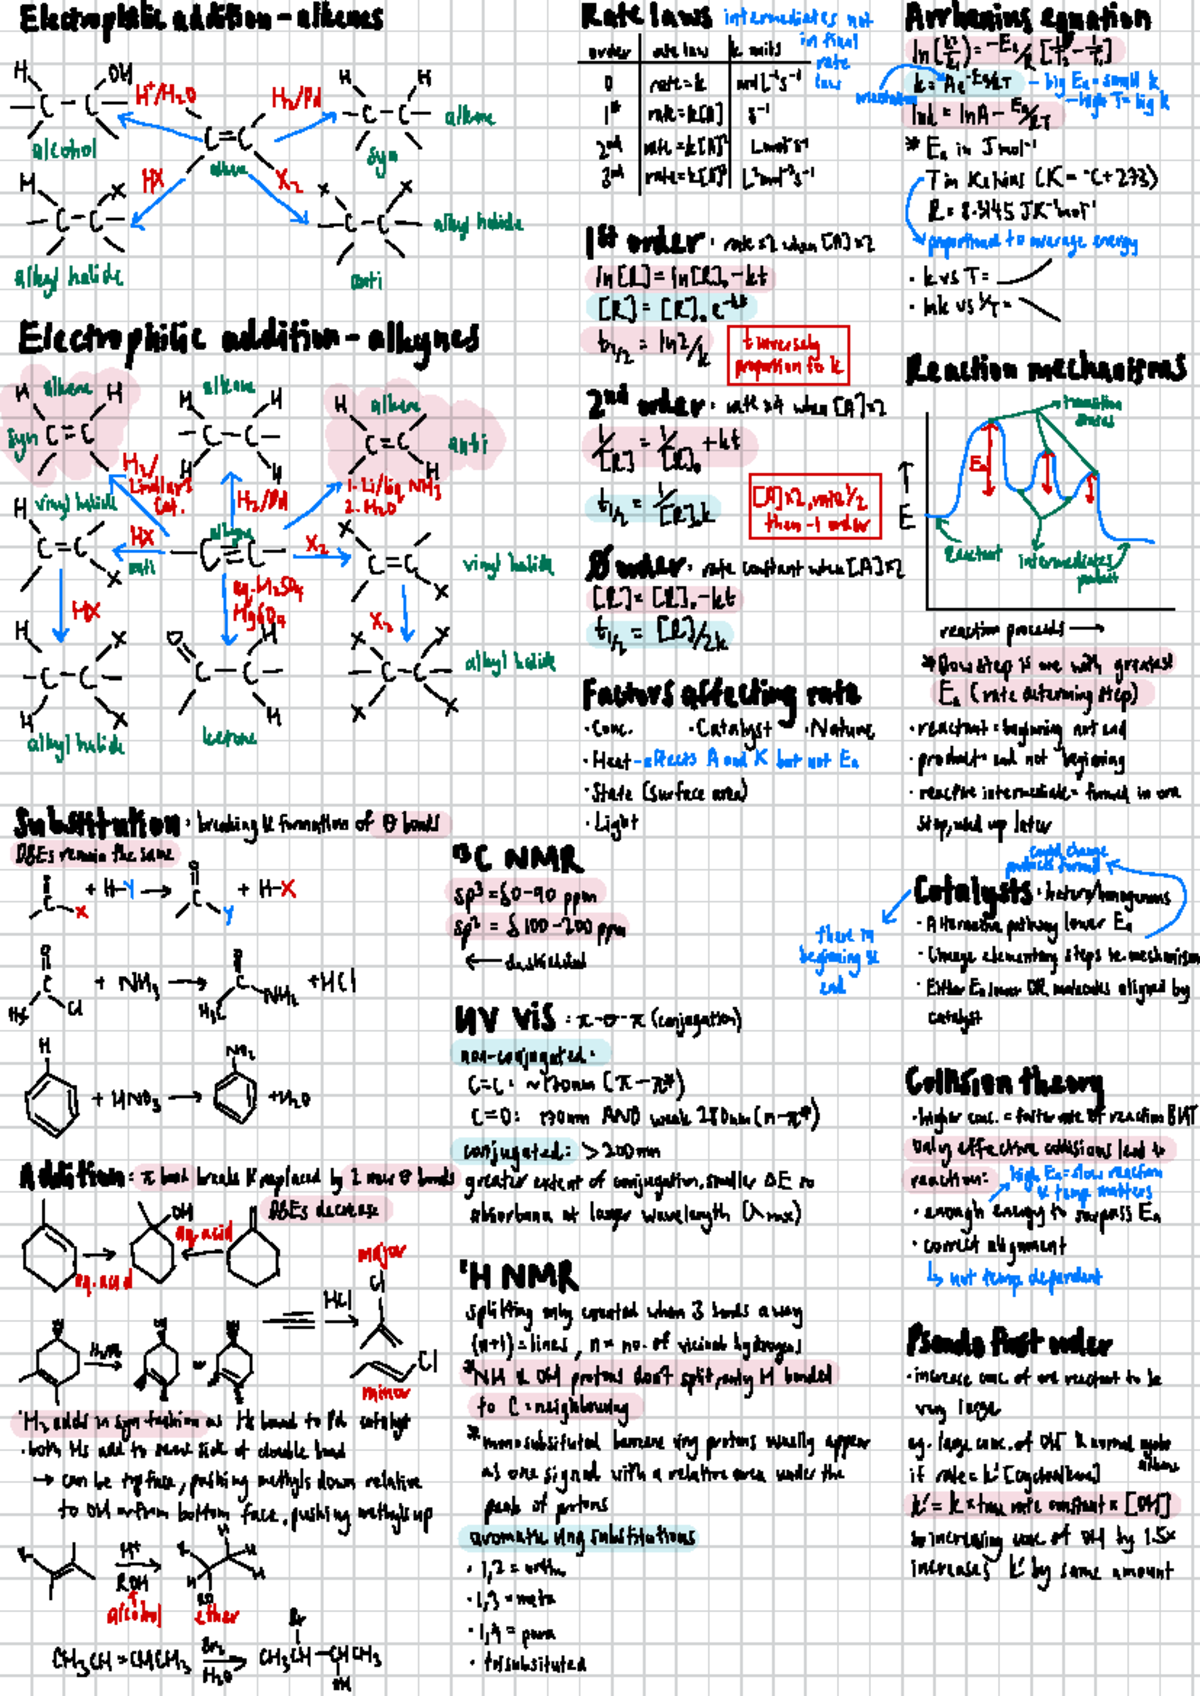 Electrophilic addition - alkenes
H OH
C - C
alcohol
H⁺/H₂O
H₂/Pd
C=C
alkene
H H
C - C
syn
alkane
HX
X₂
H X
C - C
alkyl halide
X X
C - C
anti
alkyl halide
Electrophilic addition - alkynes
alkene
H H
syn C=C
H₂/
Lindlar's
Cat.
alkane
H H
C - C
H H
H₂/Pd
alkene
H
C=C
H
anti
1. Li/liq NH₃
2. H₂O
vinyl halide
H
C=C
X
HX
anti
alkyne
C≡C
X₂
X
C=C
X
vinyl halide
HX
aq. H₂SO₄
HgSO₄
X₂
H X
C - C
H X
alkyl halide
O H
C - C
H
ketone
X X
C - C
X X
alkyl halide
Substitution: breaking & formation of σ bonds
DBEs remain the same
+ H-Y → + H-X
H₃C Cl + NH₃ → H₃C NH₂ + HCl
H + HNO₃ → NO₂ + H₂O
Addition: π bond breaks & replaced by 2 new σ bonds
DBEs decrease
OH
aq. acid
aq. acid
major
Cl
HCl
Cl
minor
H₂/Pd
or
*H₂ adds in syn fashion as Hs bound to Pd catalyst
· both Hs add to same side of double bond
→ can be top face, pushing methyls down relative
to OH or from bottom face, pushing methyls up
H⁺
ROH
alcohol
ether
CH₃CH=CHCH₃ Br₂ H₂O → CH₃CH-CHCH₃
Br
OH
Rate laws intermediates not
in final
rate
law
order rate law k units
0 rate=k molL⁻¹s⁻¹
1st rate=k[A] s⁻¹
2nd rate=k[A]² Lmol⁻¹s⁻¹
3rd rate=k[A]³ L²mol⁻²s⁻¹
1st order: rate x2 when [A]x2
ln[R]=ln[R]₀-kt
[R]=[R]₀e⁻ᵏᵗ
t₁/₂ = ln2/k
t inversely
proportion to k
2nd order: rate x4 when [A]x2
1/[R] = 1/[R]₀ +kt
t₁/₂ = 1/[R]₀k
[A]x2, rate 1/2
then -1 order
Ø order: rate constant when [A]x2
[R]=[R]₀-kt
t₁/₂ = [R]₀/2k
Factors affecting rate
·Conc. ·Catalyst ·Nature
·Heat-affects A and K but not Eₐ
·State (surface area)
·Light
¹³C NMR
sp³ = δ 0-90 ppm
sp² = δ 100-200 ppm
← deshielded
UV vis: π-σ-π (conjugation)
non-conjugated:
C=C: ~170nm (π-π*)
C=O: 170nm AND weak 280nm (n-π*)
conjugated: >200nm
greater extent of conjugation, smaller ΔE so
absorbance at longer wavelength (λmax)
¹H NMR
splitting only created when 3 bonds away
(n+1)=lines, n= no. of vicinal hydrogens
*NH & OH protons don't split, only H bonded
to C = neighbouring
*monosubsituted benzene ring protons usually appear
as one signal with a relative area under the
peak of protons
aromatic ring substitutions
·1,2 = ortho
·1,3 = meta
·1,4 = para
·trisubsituted
Arrhenius equation
ln(k₂/k₁)=-Eₐ/R [1/T₂-1/T₁]
k=Ae^-Eₐ/RT - big Eₐ=small k
-high T= big k
lnk = lnA - Eₐ/RT
* Eₐ in Jmol⁻¹
T in Kelvins (K=°C+273)
R=8.3145 JK⁻¹mol⁻¹
proportional to average energy
· k vs T=
· lnk vs 1/T=
Reaction mechanisms
transition
states
Eₐ
E
reactant
intermediates
product
reaction proceeds →
*slow step is one with greatest
Eₐ (rate determining step)
·reactant = beginning not end
·product = end not beginning
·reactive intermediate = formed in one
step, used up later
could change
products formed
Catalysts: hetero/homogenous
there in
beginning &
end
·Alternative pathway lower Eₐ
·Change elementary steps ie. mechanism
·Either Eₐ lower OR molecules aligned by
catalyst
Collision theory
·higher conc. = faster rate of reaction BUT
only effective collisions lead to
reaction: high Eₐ=slow reaction
& temp matters
·enough energy to surpass Eₐ
·correct alignment
↳ not temp dependent
Pseudo first order
·increase conc. of one reactant to be
very large
eg. large conc. of OH⁻ & normal cyclo
alkane
if rate=k'
k' = k x true rate constant x [OH]
so increasing conc. of OH by 1.5x
increases k' by same amount